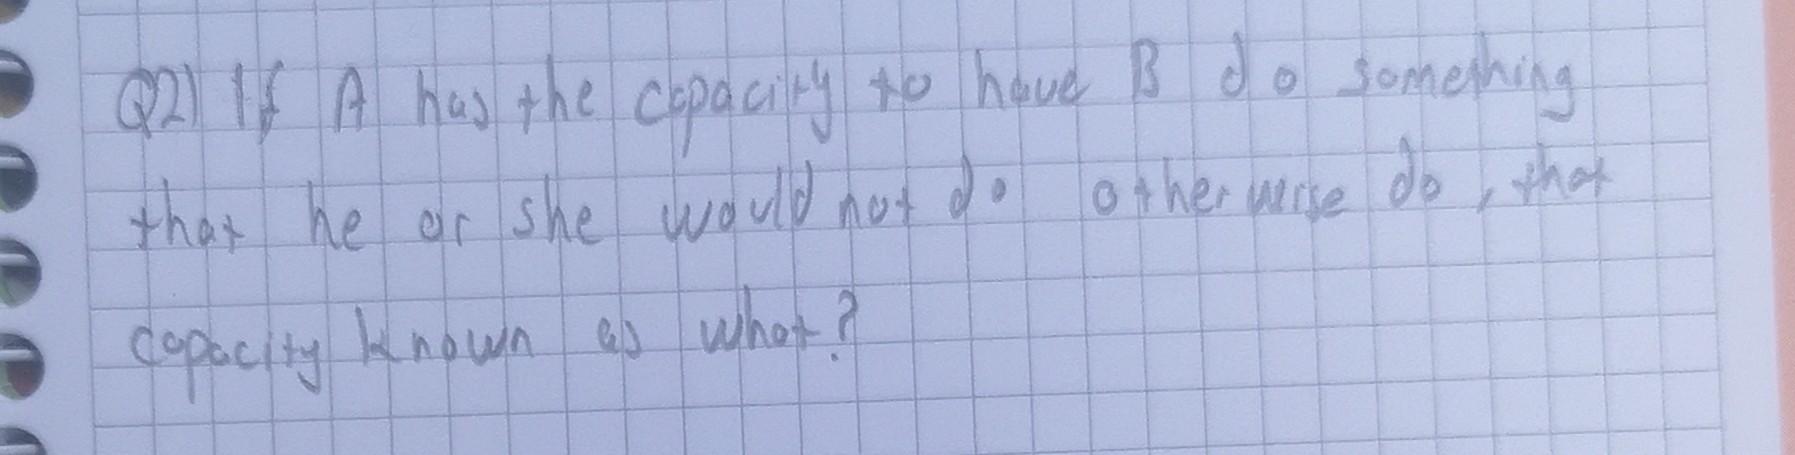 Q2) If A has the capacity to have B do something
that he or she would not do otherwise do, that
capacity known as what?